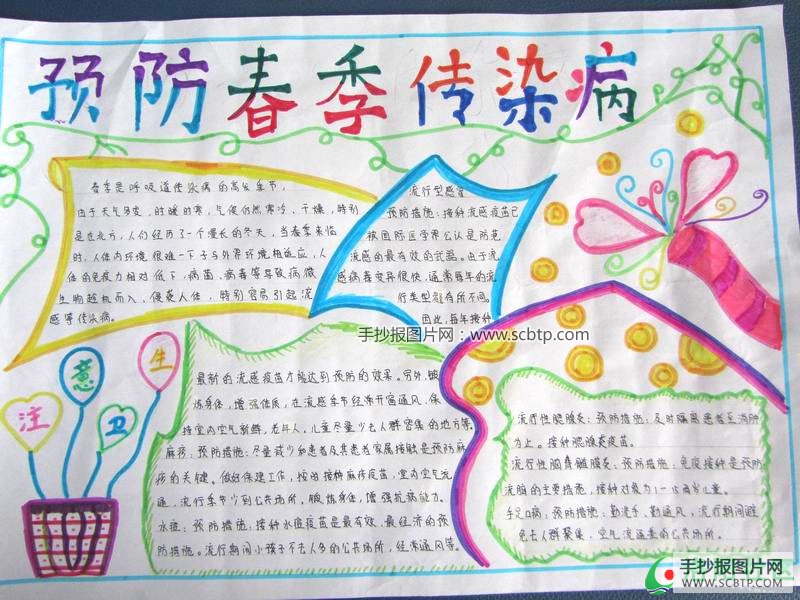 预防春季传染病
春季是呼吸道传染病的高发季节,
由于天气易变,时暖时寒,气候仍然寒冷、干燥,特别
是在北方,人们经历了一个漫长的冬天,当春季来临
时,人体内环境很难一下子与外界环境相适应,人
体的免疫力相对低下,病菌、病毒等导致病微
生物趁机而入,侵袭人体,特别容易引起流
感等传染病。
流行型感冒
预防措施:接种流感疫苗已
被国际医学界公认是防范
流感的最有效的武器。由于流
感病毒变异很快,通常每年的流
行类型都有所不同。
因此,每年接种
手抄报图片网:www.scbtp.com
最新的流感疫苗才能达到预防的效果。另外,锻
炼身体,增强体质,在流感季节经常开窗通风,保
持室内空气新鲜,老年人、儿童尽量少去人群密集的地方等。
麻疹:预防措施:尽量减少和患者及其患者家属接触是预防麻
疹的关键。做好保健工作,按时接种麻疹疫苗,室内空气流
通,流行季节少到公共场所。锻炼身体,增强抗病能力。
水痘:预防措施:接种水痘疫苗是最有效、最经济的预
防措施。流行期间小孩子不去人多的公共场所,经常通风等。
流行性腮腺炎:预防措施:及时隔离患者至消肿
为止。接种腮腺炎疫苗。
流行性脑脊髓膜炎:预防措施:免疫接种是预防
流脑的主要措施,接种对象为1-15岁儿童。
手足口病:预防措施:勤洗手、勤通风,流行期间避
免去人群聚集、空气流通差的公共场所。
注意卫生
手抄报图片网
WWW.SCBTP.COM